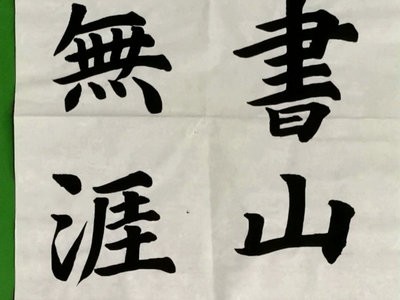 書山
無涯